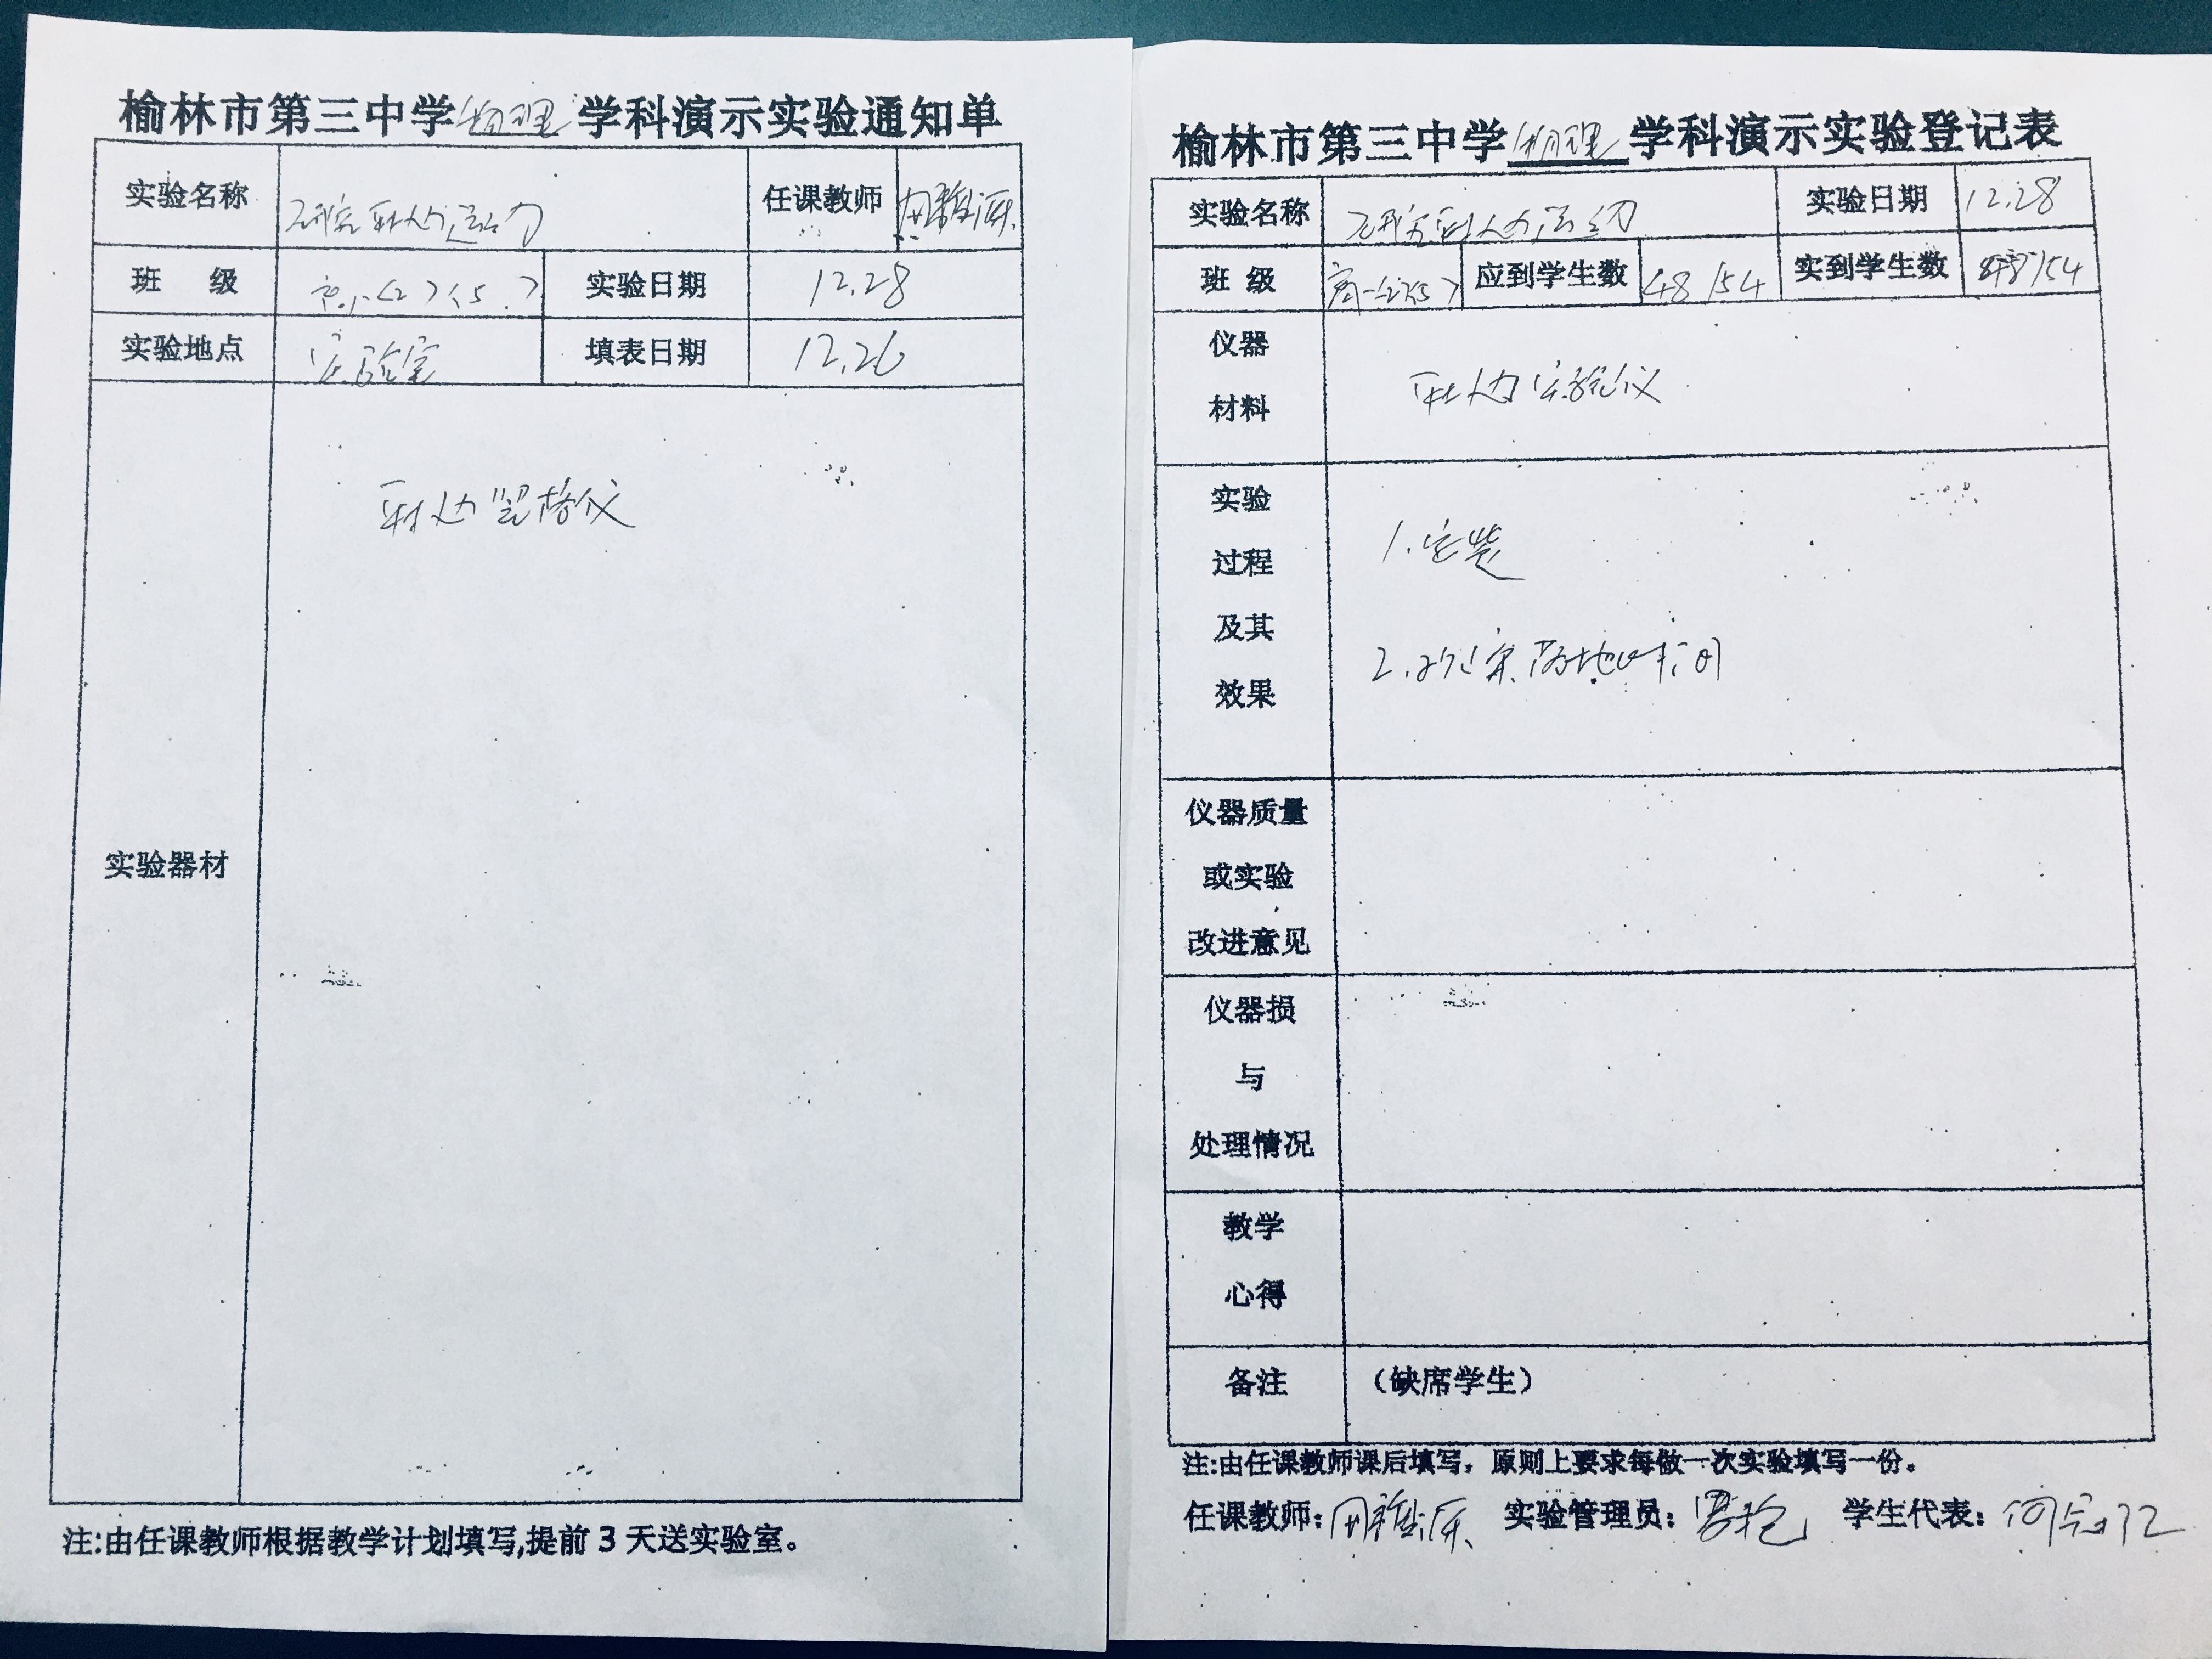 榆林市第三中学物理学科演示实验通知单
实验名称 研究平抛运动 任课教师
班 级 高一<2><5> 实验日期 12.28
实验地点 实验室 填表日期 12.26
实验器材
注:由任课教师根据教学计划填写,提前3天送实验室。
榆林市第三中学物理学科演示实验登记表
实验名称 研究平抛运动 实验日期 12.28
班 级 高一<2><5> 应到学生数 48/54 实到学生数 48/54
仪器
材料
实验
过程
及其
效果
1.安装
2.观察落地时间
仪器质量
或实验
改进意见
仪器损
与
处理情况
教学
心得
备注 (缺席学生)
注:由任课教师课后填写,原则上要求每做一次实验填写一份。
任课教师: 实验管理员: 学生代表: